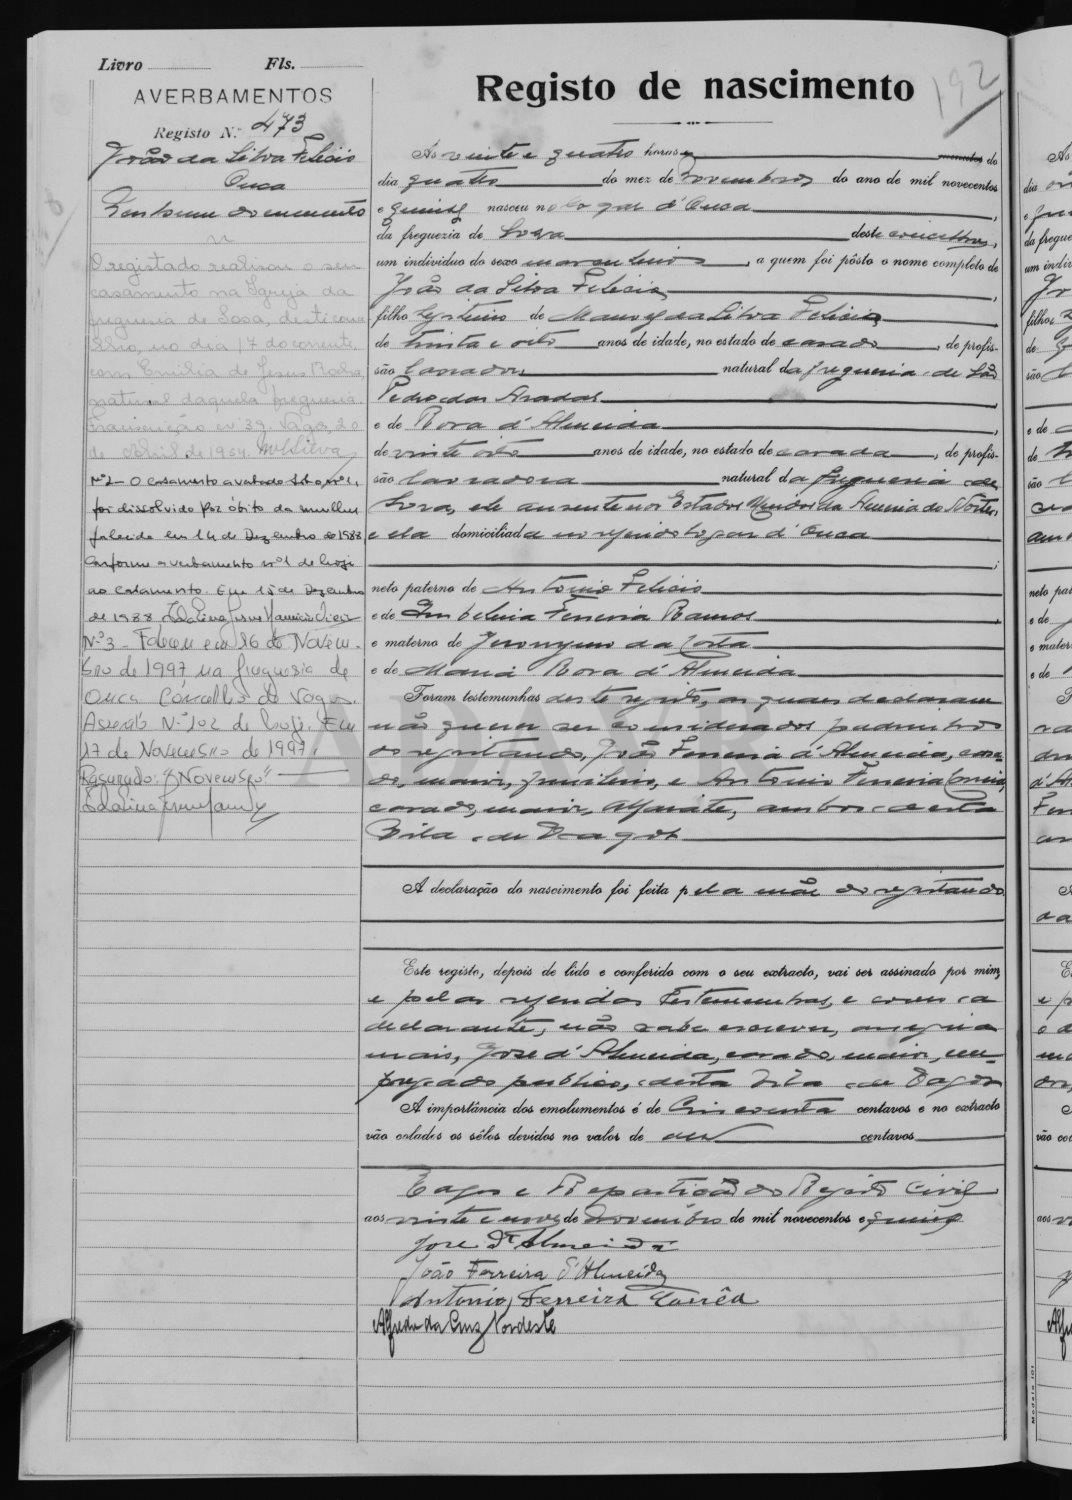 Livro Fls.
AVERBAMENTOS
Registo N.º 473
João da Silva Felicio
Ouca
Nenhum documento
O registado realizou o seu
casamento na Igreja da
freguesia de Sosa, deste conce
lho, no dia 17 do corrente,
com Emilia de Jesus
natural daquela freguesia.
Transcrição nº 39. Vagos, 20
de Abril de 1954. MSilva
Nº2 - O casamento averbado sob o nº 1,
foi dissolvido por óbito da mulher
falecida em 14 de Dezembro de 1988
conforme averbamento nº 1 de hoje
ao casamento. Em 15 de Dezembro
de 1988
Nº 3 - Faleceu em 16 de Novem-
bro de 1997 na freguesia de
Ouca Concelho de Vagos.
Assento Nº 102 de hoje. Em
17 de Novembro de 1997.
Rasurado: "Novembro"
192
Registo de nascimento
Ás vinte e quatro horas e minutos do
dia quatro do mez de Novembro do ano de mil novecentos
e quinze nasceu no logar d'Ouca,
da freguezia de Soza deste concelho,
um individuo do sexo masculino, a quem foi pôsto o nome completo de
João da Silva Felicio,
filho legitimo de Manuel da Silva Felicio
de trinta e oito anos de idade, no estado de casado, de profis-
são lavrador natural da freguesia de São
Pedro das Aradas,
e de Rosa d'Almeida,
de vinte oito anos de idade, no estado de casada, de profis-
são lavradora natural da freguesia de
Soza, ele ausente nos Estados Unidos da America do Norte,
e ela domiciliada no referido logar d'Ouca
;
neto paterno de Antonio Felicio
e de Ferreira Ramos,
e materno de Jeronymo da Costa
e de Maria Rosa d'Almeida
Foram testemunhas deste registo, as quaes declararam
não querer ser consideradas padrinhos
do registando, João Ferreira d'Almeida, casa-
do, maior, funileiro, e Antonio Ferreira Corrêa,
casado, maior, alfaiate, ambos desta
Vila de Vagos
A declaração do nascimento foi feita pela mãe do registando
Este registo, depois de lido e conferido com o seu extracto, vai ser assinado por mim,
e pelas referidas testemunhas, e como a
declarante, não sabe escrever, assina
mais, José d'Almeida, casado, maior, em-
pregado publico, desta Vila de Vagos
A importância dos emolumentos é de Cincoenta centavos e no extracto
vão colados os sêlos devidos no valor de dez centavos
Vagos e Repartição do Registo Civil
aos vinte e nove de Novembro de mil novecentos e quinze
José d'Almeida
João Ferreira d'Almeida
Antonio Ferreira Corrêa
Alfredo da Cruz Nordeste
Modelo 101